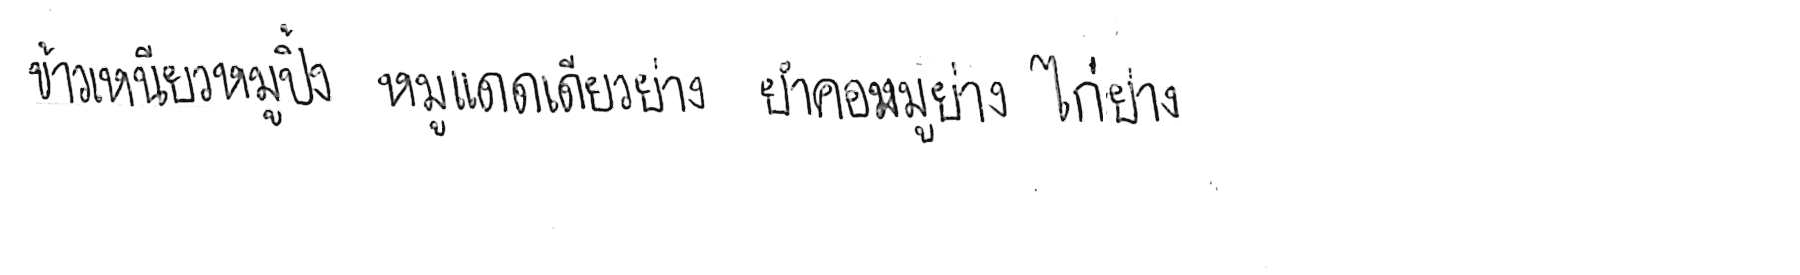 ข้าวเหนียวหมูปิ้ง หมูแดดเดียวย่าง ยำคอหมูย่าง ไก่ย่าง